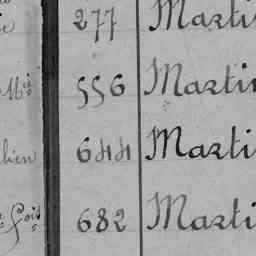 277 Marti
Mis 556 Martin
lien 644 Marti
fois 682 Marti